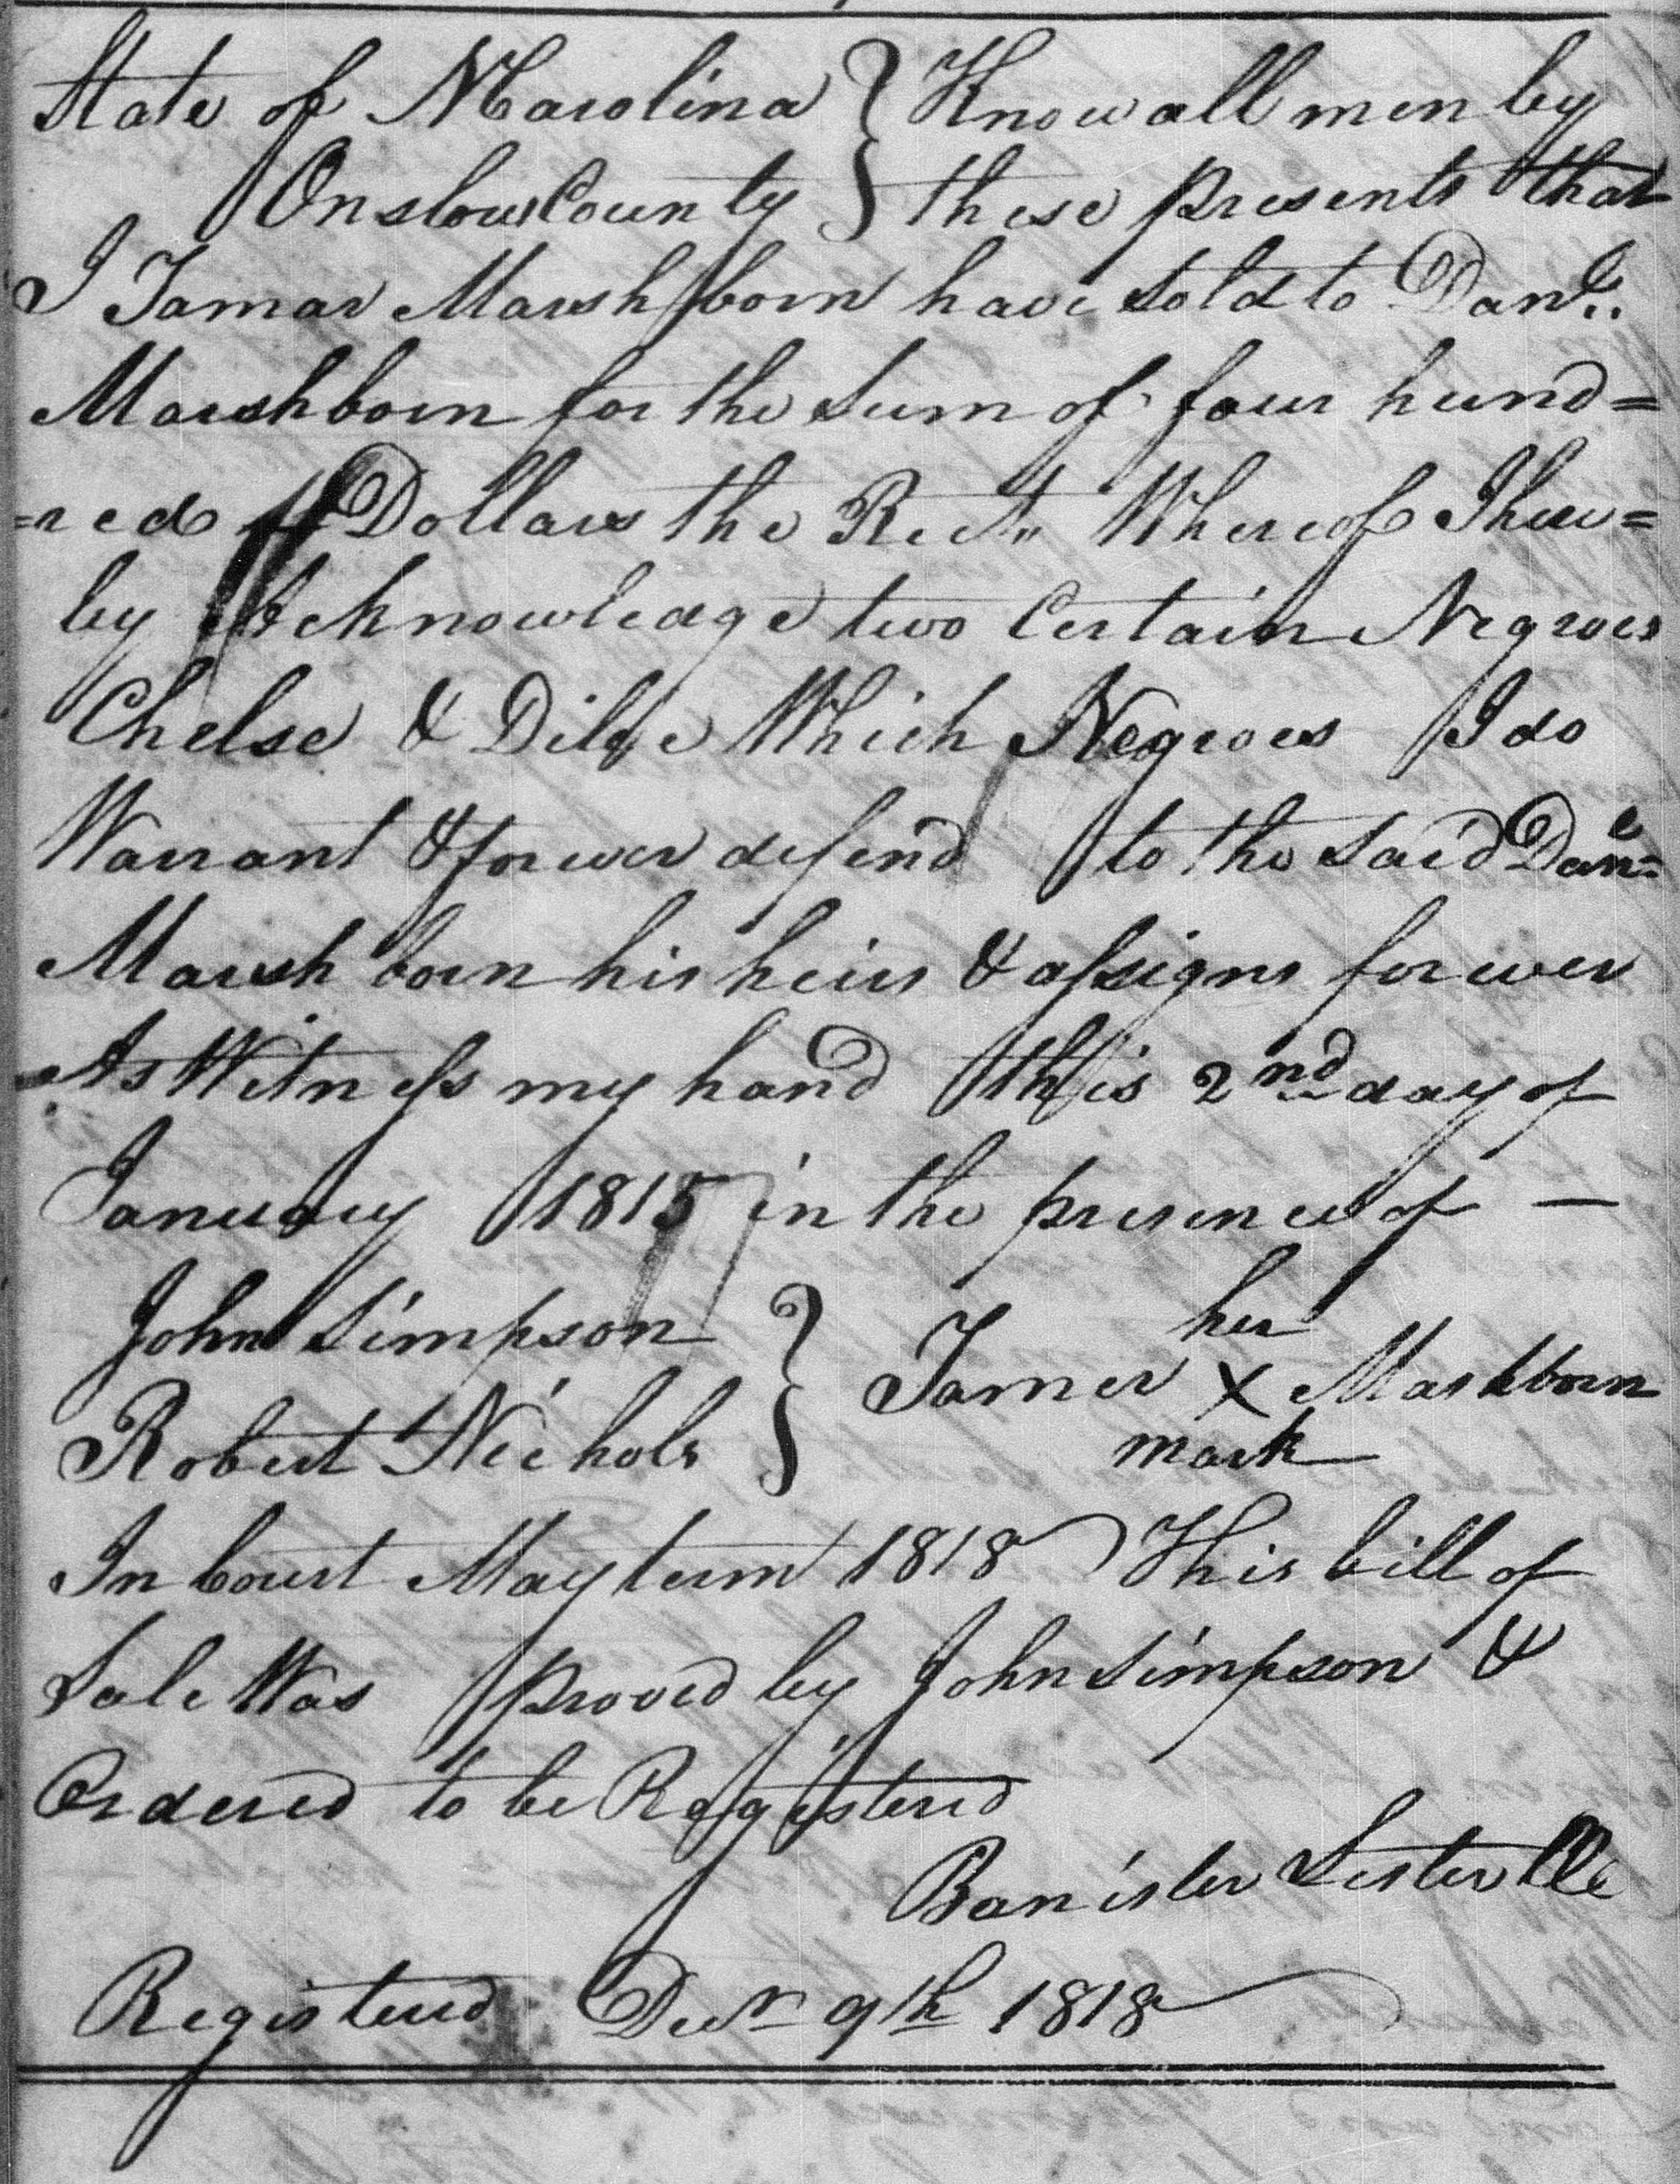 State of N Carolina } Know all men by
Onslow County } these presents that
I Tamar Marshborn have sold to Danl.
Marshborn for the Sum of four hund=
=red Dollars the Rect. Whereof I here=
by Acknowledge two Certain Negroes
Chelse & Dilse Which Negroes I do
Warrant & forever defend to the said Danl
Marshborn his heirs & assigns forever
As Witness my hand this 2nd day of
January 1815 in the presence of —
her
John Simpson } Tamer X Mashborn
Robert Nichols } mark
In Court May term 1818 This bill of
Sale Was proved by John Simpson &
Ordered to be Registered
Banister Lester
Registered Decr 9th 1818